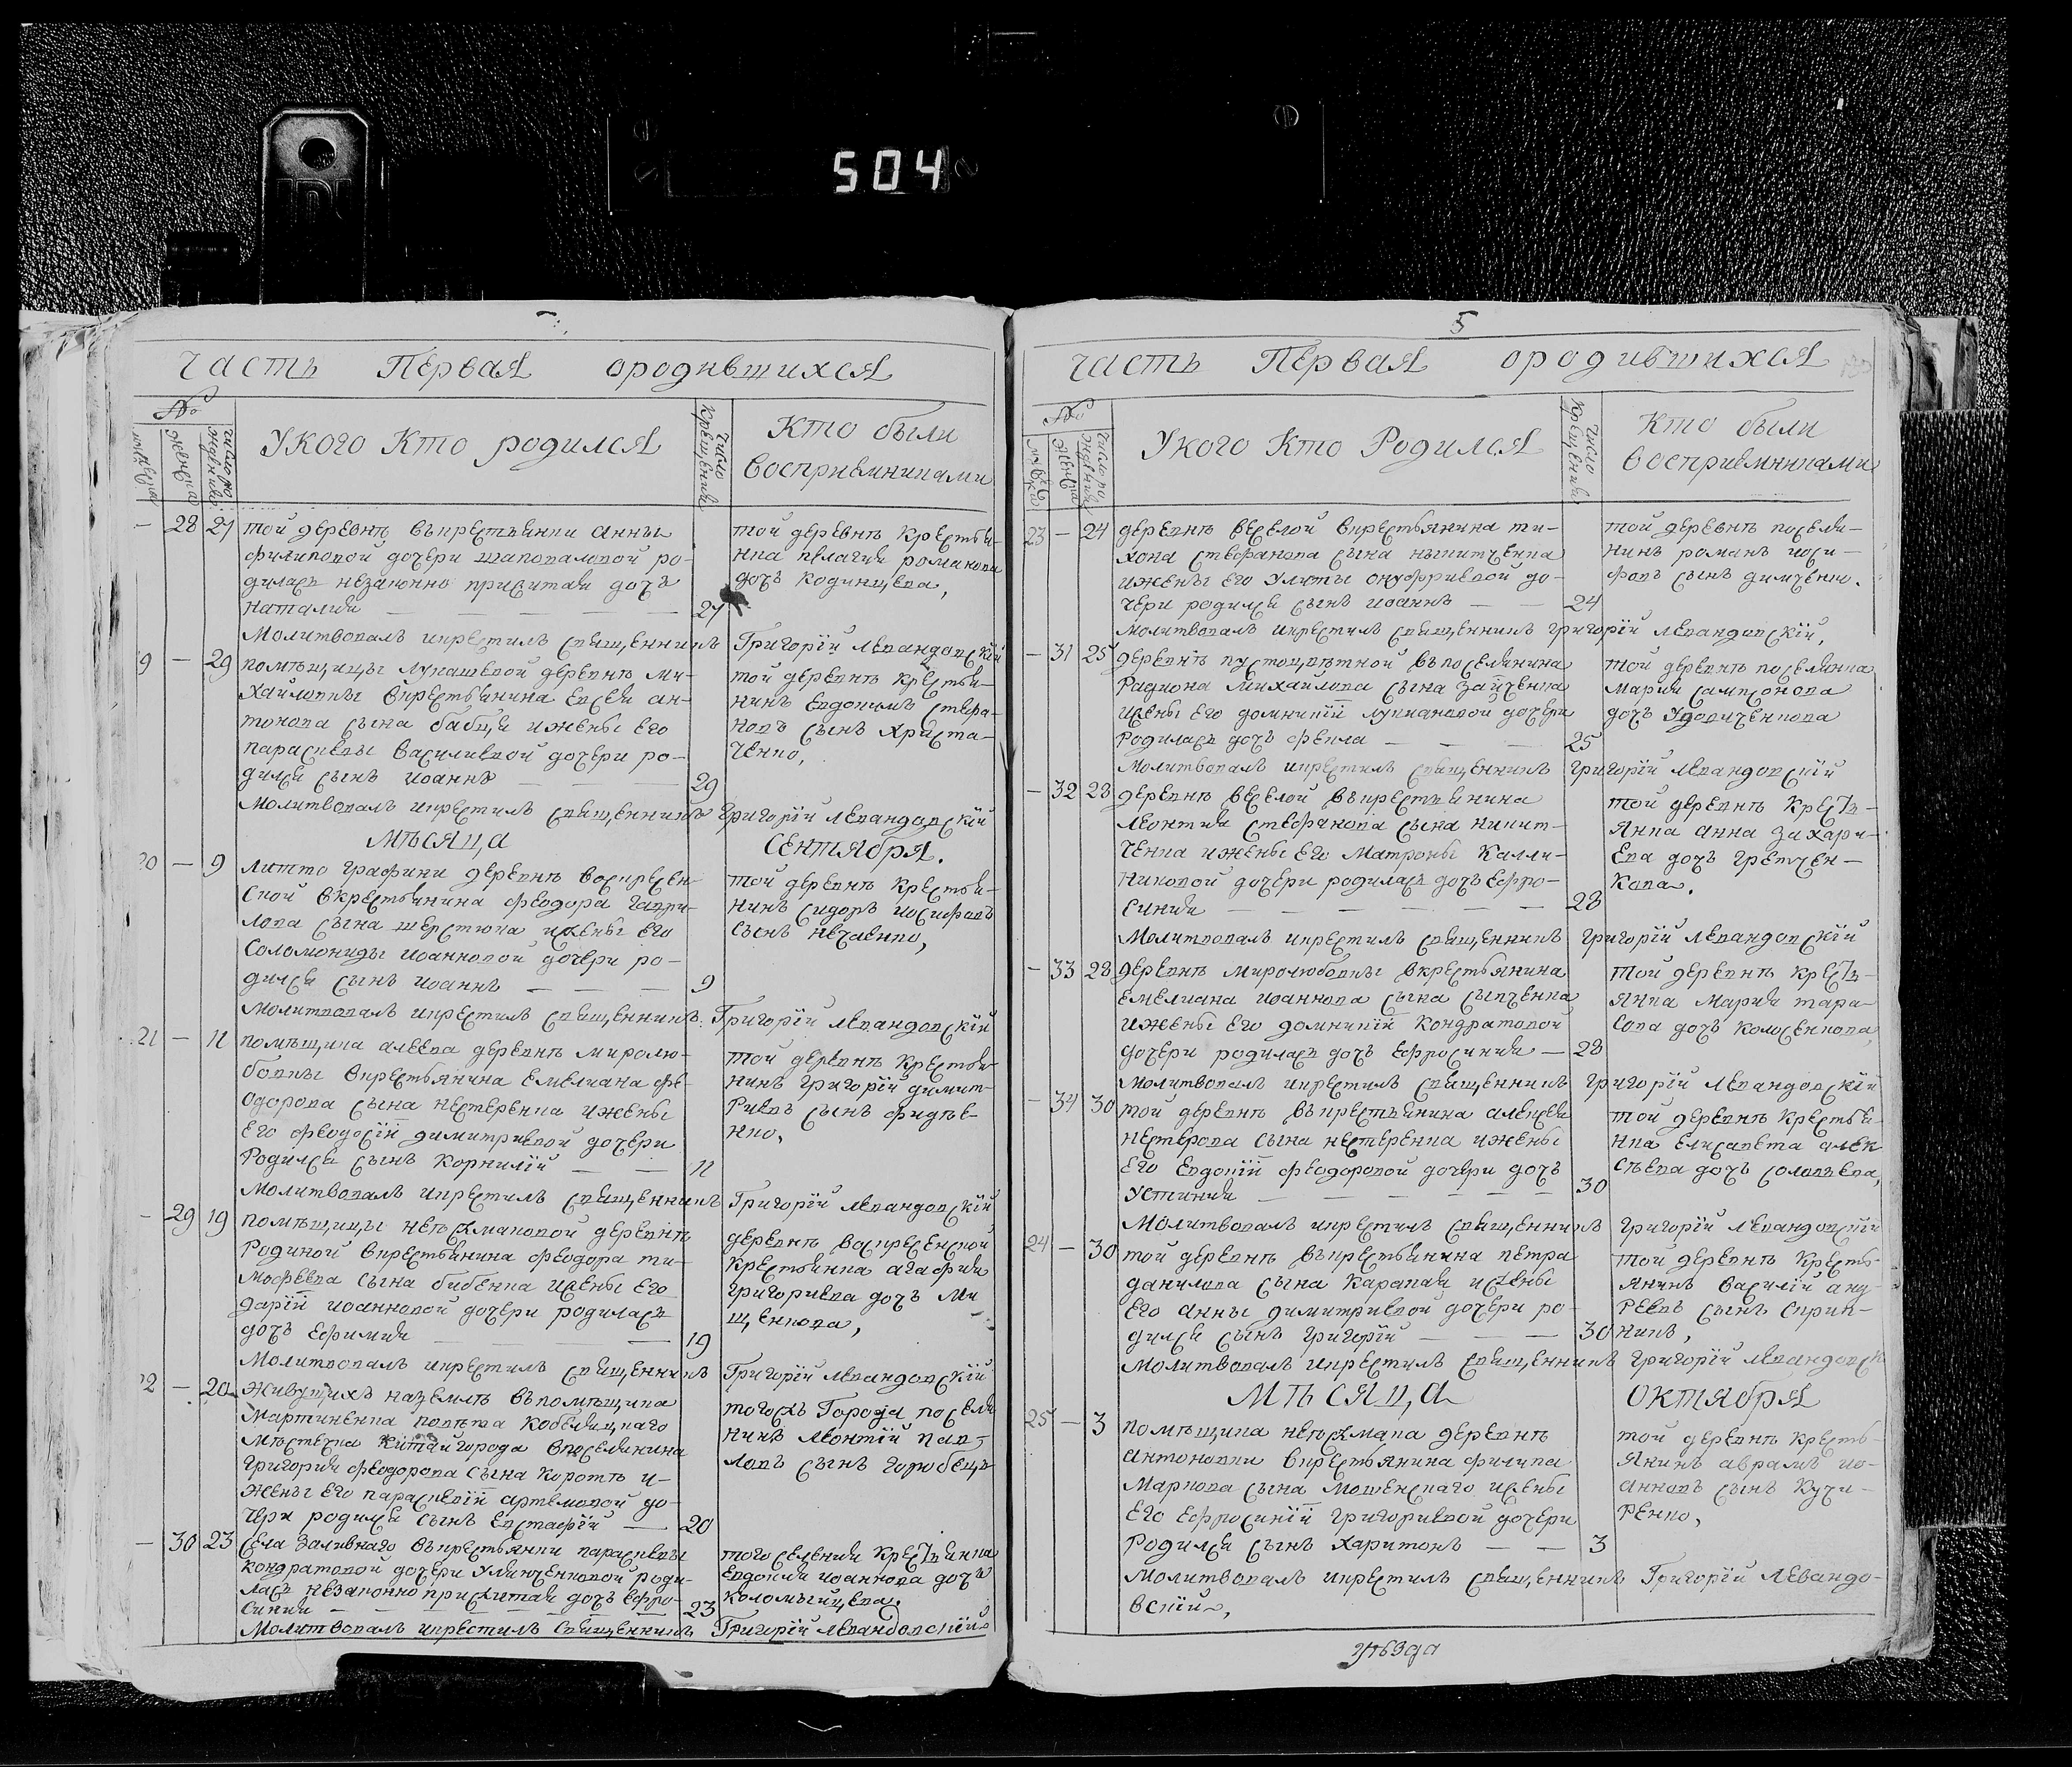 504
Часть Первая ородившихся
№
Укого Кто родился
Число Крещения
Кто были
восприемниками
28 27 той деревнѣ въкрестьянки Анны
филиповой дочери шаповаловой ро-
дилась незаконно прижитая дочь
Наталия 27
той деревнѣ Крестья-
нка пелагия романова
дочь кодинцева,
Молитвовалъ икрестилъ священникъ Григорїй Левандовскїй
9 — 29 помѣщицы лукашевой деревнѣ ми-
хайловны вкрестьянина евсея ан-
тонова сына бабця ижены Его
параскевы василиевой дочери ро-
дился сынъ иоаннъ 29
той деревнѣ крестья-
нинъ Евдокимъ стефа-
новъ сынъ христа-
ченко,
Молитвовалъ икрестилъ священникъ Григорїй Левандовскїй
Мѣсяца Сентября.
20 — 9 литто графини деревнѣ воскресен-
ской вкрестьянина феодора гаври-
лова сына шерстюка ижены его
Соломониды иоанновой дочери ро-
дился сынъ иоаннъ — — — 9
той деревнѣ крестья-
нинъ сидоръ иосифовъ
сынъ нечаенко,
Молитвовалъ икрестилъ священникъ Григорїй Левандовскїй
21 — 11 помѣщика алеева деревнѣ миролю-
бовны вкрестьянина Емелиана фе-
одорова сына нестеренка ижены
Его феодосїй димитриевой дочери
Родился сынъ Корнилїй — — 11
той деревнѣ крестья-
нинъ григорїй димит-
риевъ сынъ фидѣе-
нко,
Молитвовалъ икрестилъ священникъ Григорїй Левандовскїй
— 29 19 помѣщицы неѣжмаковой деревнѣ
Родиной вкрестьянина феодора ти-
мофеева сына бибенка ижены Его
дарїй иоанновой дочери родилась
дочь Ефимия — 19
деревнѣ воскресенской
крестьянка агафия
григориева дочь Ми
щенкова,
Молитвовалъ икрестилъ священникъ Григорїй Левандовскїй
22 — 20 Живущихъ наземлѣ въпомѣщика
Мартиненка повѣта кобеляцкаго
Мѣстечка Китайгорода впоселянина
григория феодорова сына коротъ и-
жены Его параскевїй артемовой до-
чери родился сынъ Евстафїй — 20
тогожъ Города поселя
нинъ Леонтїй пав-
ловъ сынъ горобецъ
— 30 23 Села заливнаго въкрестьянки параскевы
кондратовой дочери Улинченковой роди-
лась незаконно прижитая дочь Ефро-
синия 23
того селения крестьянка
Евдокия иоаннова дочь
коломыйцева.
Молитвовалъ икрестилъ Священникъ Григорїй Левандовскїй
5
Часть Первая ородившихся
№
Укого Кто Родился
Число Крещения
Кто были
восприемниками
23 — 24 деревнѣ веселой вкрестьянина ти-
хона стефанова сына ныкитченка
ижены его Улиты онуфриевой до-
чери родился сынъ иоаннъ — — 24
той деревнѣ поселя-
нинъ романъ иоси-
фовъ сынъ димченко.
Молитвовалъ икрестилъ священникъ григорїй левандовскїй,
— 31 25 деревнѣ пустоцвѣтной въпоселянина
Радиона Михайлова сына зайченка
ижены Его домникїй лукиановой дочери
Родилась дочь фекла — — — 25
той деревнѣ поселянка
Мария Сампсонова
дочь Удовиченкова
Молитвовалъ икрестилъ священникъ григорїй Левандовскїй
— 32 28 деревнѣ веселой въкрестьянина
Леонтия Стефанова сына никит-
ченка ижены Его Матроны Калли-
никовой дочери родилась дочь Ефро-
синия — — — — — — 28
той деревнѣ крестъ-
янка анна захари-
Ева дочь гретчен-
кова.
Молитвовалъ икрестилъ священникъ григорїй Левандовскїй
— 33 28 деревнѣ миролюбовны вкрестьянина
Емелиана иоаннова сына сыпченка
ижены Его домникїй кондратовой
дочери родилась дочь Ефросиния — 28
той деревнѣ крестъ-
янка Мария тара-
сова дочь колосенкова,
Молитвовалъ икрестилъ священникъ григорїй Левандовскїй
— 34 30 той деревнѣ въкрестьянина алексея
нестерова сына нестеренка ижены
Его Евдокїй феодоровой дочери дочь
Устиния — — — — — — 30
той деревнѣ крестья-
нка Елисавета алек
сѣева дочь соловьева,
Молитвовалъ икрестилъ священникъ григорїй Левандовскїй
24 — 30 той деревнѣ въкрестьянина петра
данилова сына карапая ижены
Его анны димитриевой дочери ро-
дился сынъ григорїй — — — 30
той деревнѣ кресть-
янинъ василїй анд-
реевъ сынъ скрип-
никъ,
Молитвовалъ икрестилъ священникъ григорїй левандовск
Мѣсяца Октября
25 — 3 помѣщика неѣжмака деревнѣ
антоновки вкрестьянина филипа
Маркова сына мошенскаго ижены
Его Ефросинїй григориевой дочери
Родился сынъ Харитонъ — — 3
той деревнѣ кресть-
янинъ аврамъ ио-
анновъ сынъ кучи-
ренко,
Молитвовалъ икрестилъ священникъ Григорїй Левандо-
вскїй,
уѣзда